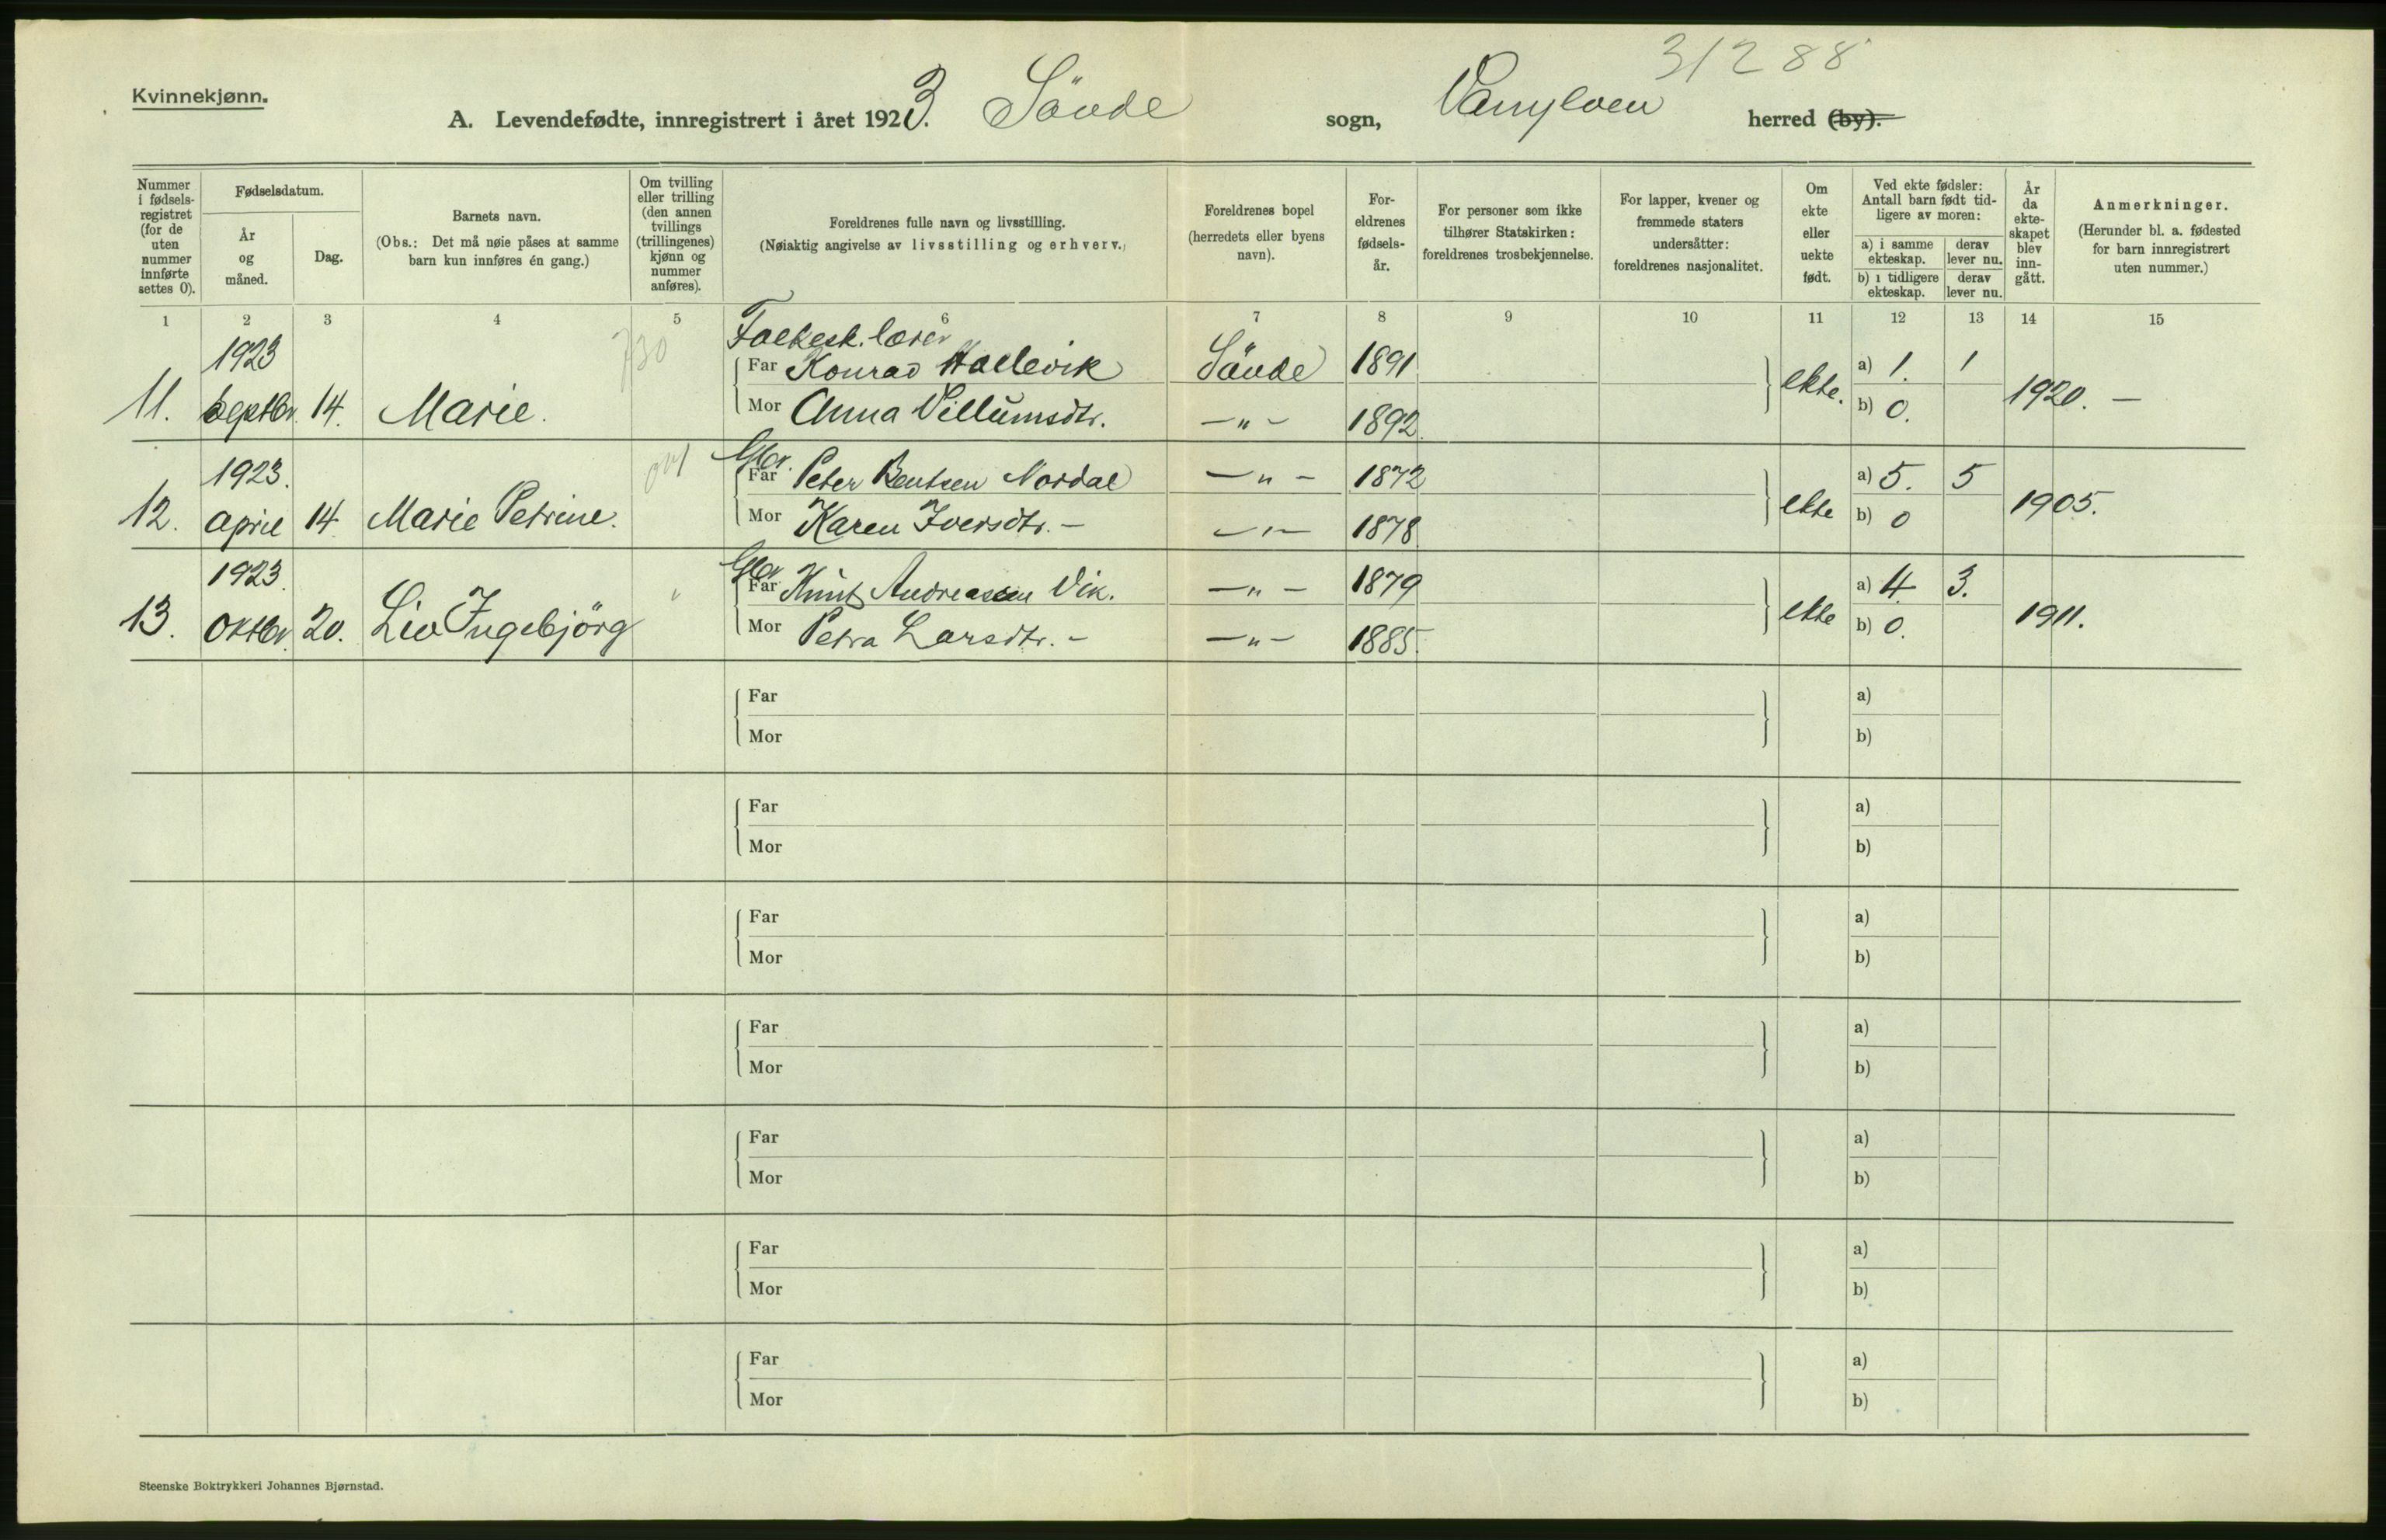 31288
Kvinnekjønn.
A. Levendefødte, innregistrert i året 1923. Sövde sogn, Vanylven herred (by).
Nummer i fødsels- registret (for de uten nummer innførte settes 0).
Fødselsdatum.
År og måned.
Dag.
Barnets navn.
(Obs.: Det må nøie påses at samme barn kun innføres én gang.)
Om tvilling eller trilling (den annen tvillings (trillingenes) kjønn og nummer anføres).
Foreldrenes fulle navn og livsstilling.
(Nøiaktig angivelse av livsstilling og erhverv.)
Foreldrenes bopel (herredets eller byens navn).
For- eldrenes fødsels- år.
For personer som ikke tilhører Statskirken: foreldrenes trosbekjennelse.
For lapper, kvener og fremmede staters undersåtter: foreldrenes nasjonalitet.
Om ekte eller uekte født.
Ved ekte fødsler: Antall barn født tid- ligere av moren:
a) i samme ekteskap.
derav lever nu.
b) i tidligere ekteskap.
derav lever nu.
År da ekte- skapet blev inn- gått.
Anmerkninger.
(Herunder bl. a. fødested for barn innregistrert uten nummer.)
1 2 3 4 5 6 7 8 9 10 11 12 13 14 15
730 Folkesk. lærer
1923 Far Konrad Hallevik Sövde 1891 a) 1. 1
11. Septbr. 14. Marie. Mor Anna Villumsdtr. —"— 1892 ekte. b) 0. 1920. —
Gbr.
1923. Far Peter Bentsen Nordal —"— 1872 a) 5. 5
12. April 14 Marie Petrine. Mor Karen Iversdtr. — —"— 1878 ekte b) 0 1905.
Gbr.
1923. Far Knut Andreassen Vik. —"— 1879 a) 4 3.
13. Oktbr. 20. Liv Ingebjörg Mor Petra Larsdtr. — —"— 1885. ekte b) 0. 1911.
Far a)
Mor b)
Far a)
Mor b)
Far a)
Mor b)
Far a)
Mor b)
Far a)
Mor b)
Far a)
Mor b)
Far a)
Mor b)
Steenske Boktrykkeri Johannes Bjørnstad.